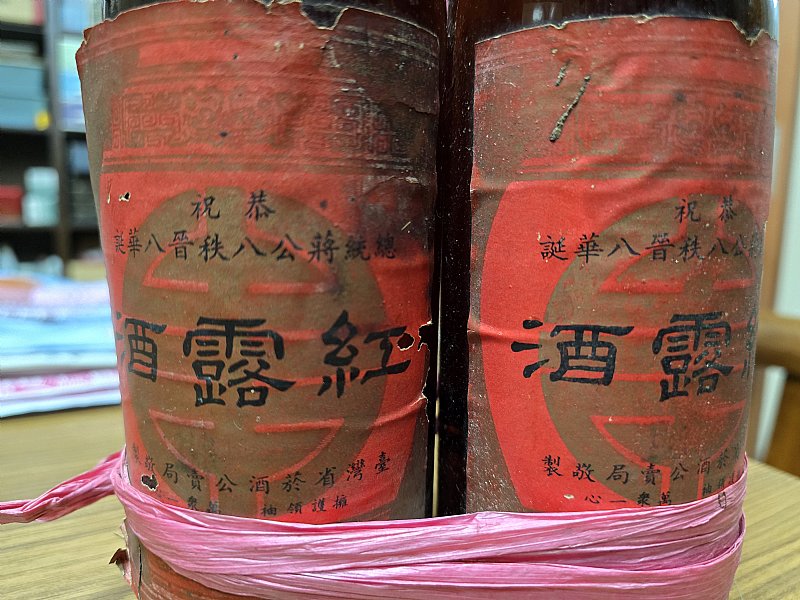 恭祝
總統蔣公八秩晉八華誕
紅露酒
臺灣省菸酒公賣局敬製
擁護領袖 萬衆
恭祝
蔣公八秩晉八華誕
露酒
菸酒公賣局敬製
袖 萬衆一心